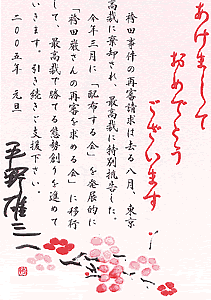 あけまして
おめでとう
ございます
袴田事件の再審請求は去る八月、東京
高裁に棄却され、最高裁に特別抗告した。
今年三月に「配布する会」を発展的に
「袴田巌さんの再審を求める会」に移行
して、最高裁で勝てる態勢創りを進めて
いきます。引き続きご支援下さい。
二〇〇五年 元旦
平野雄三